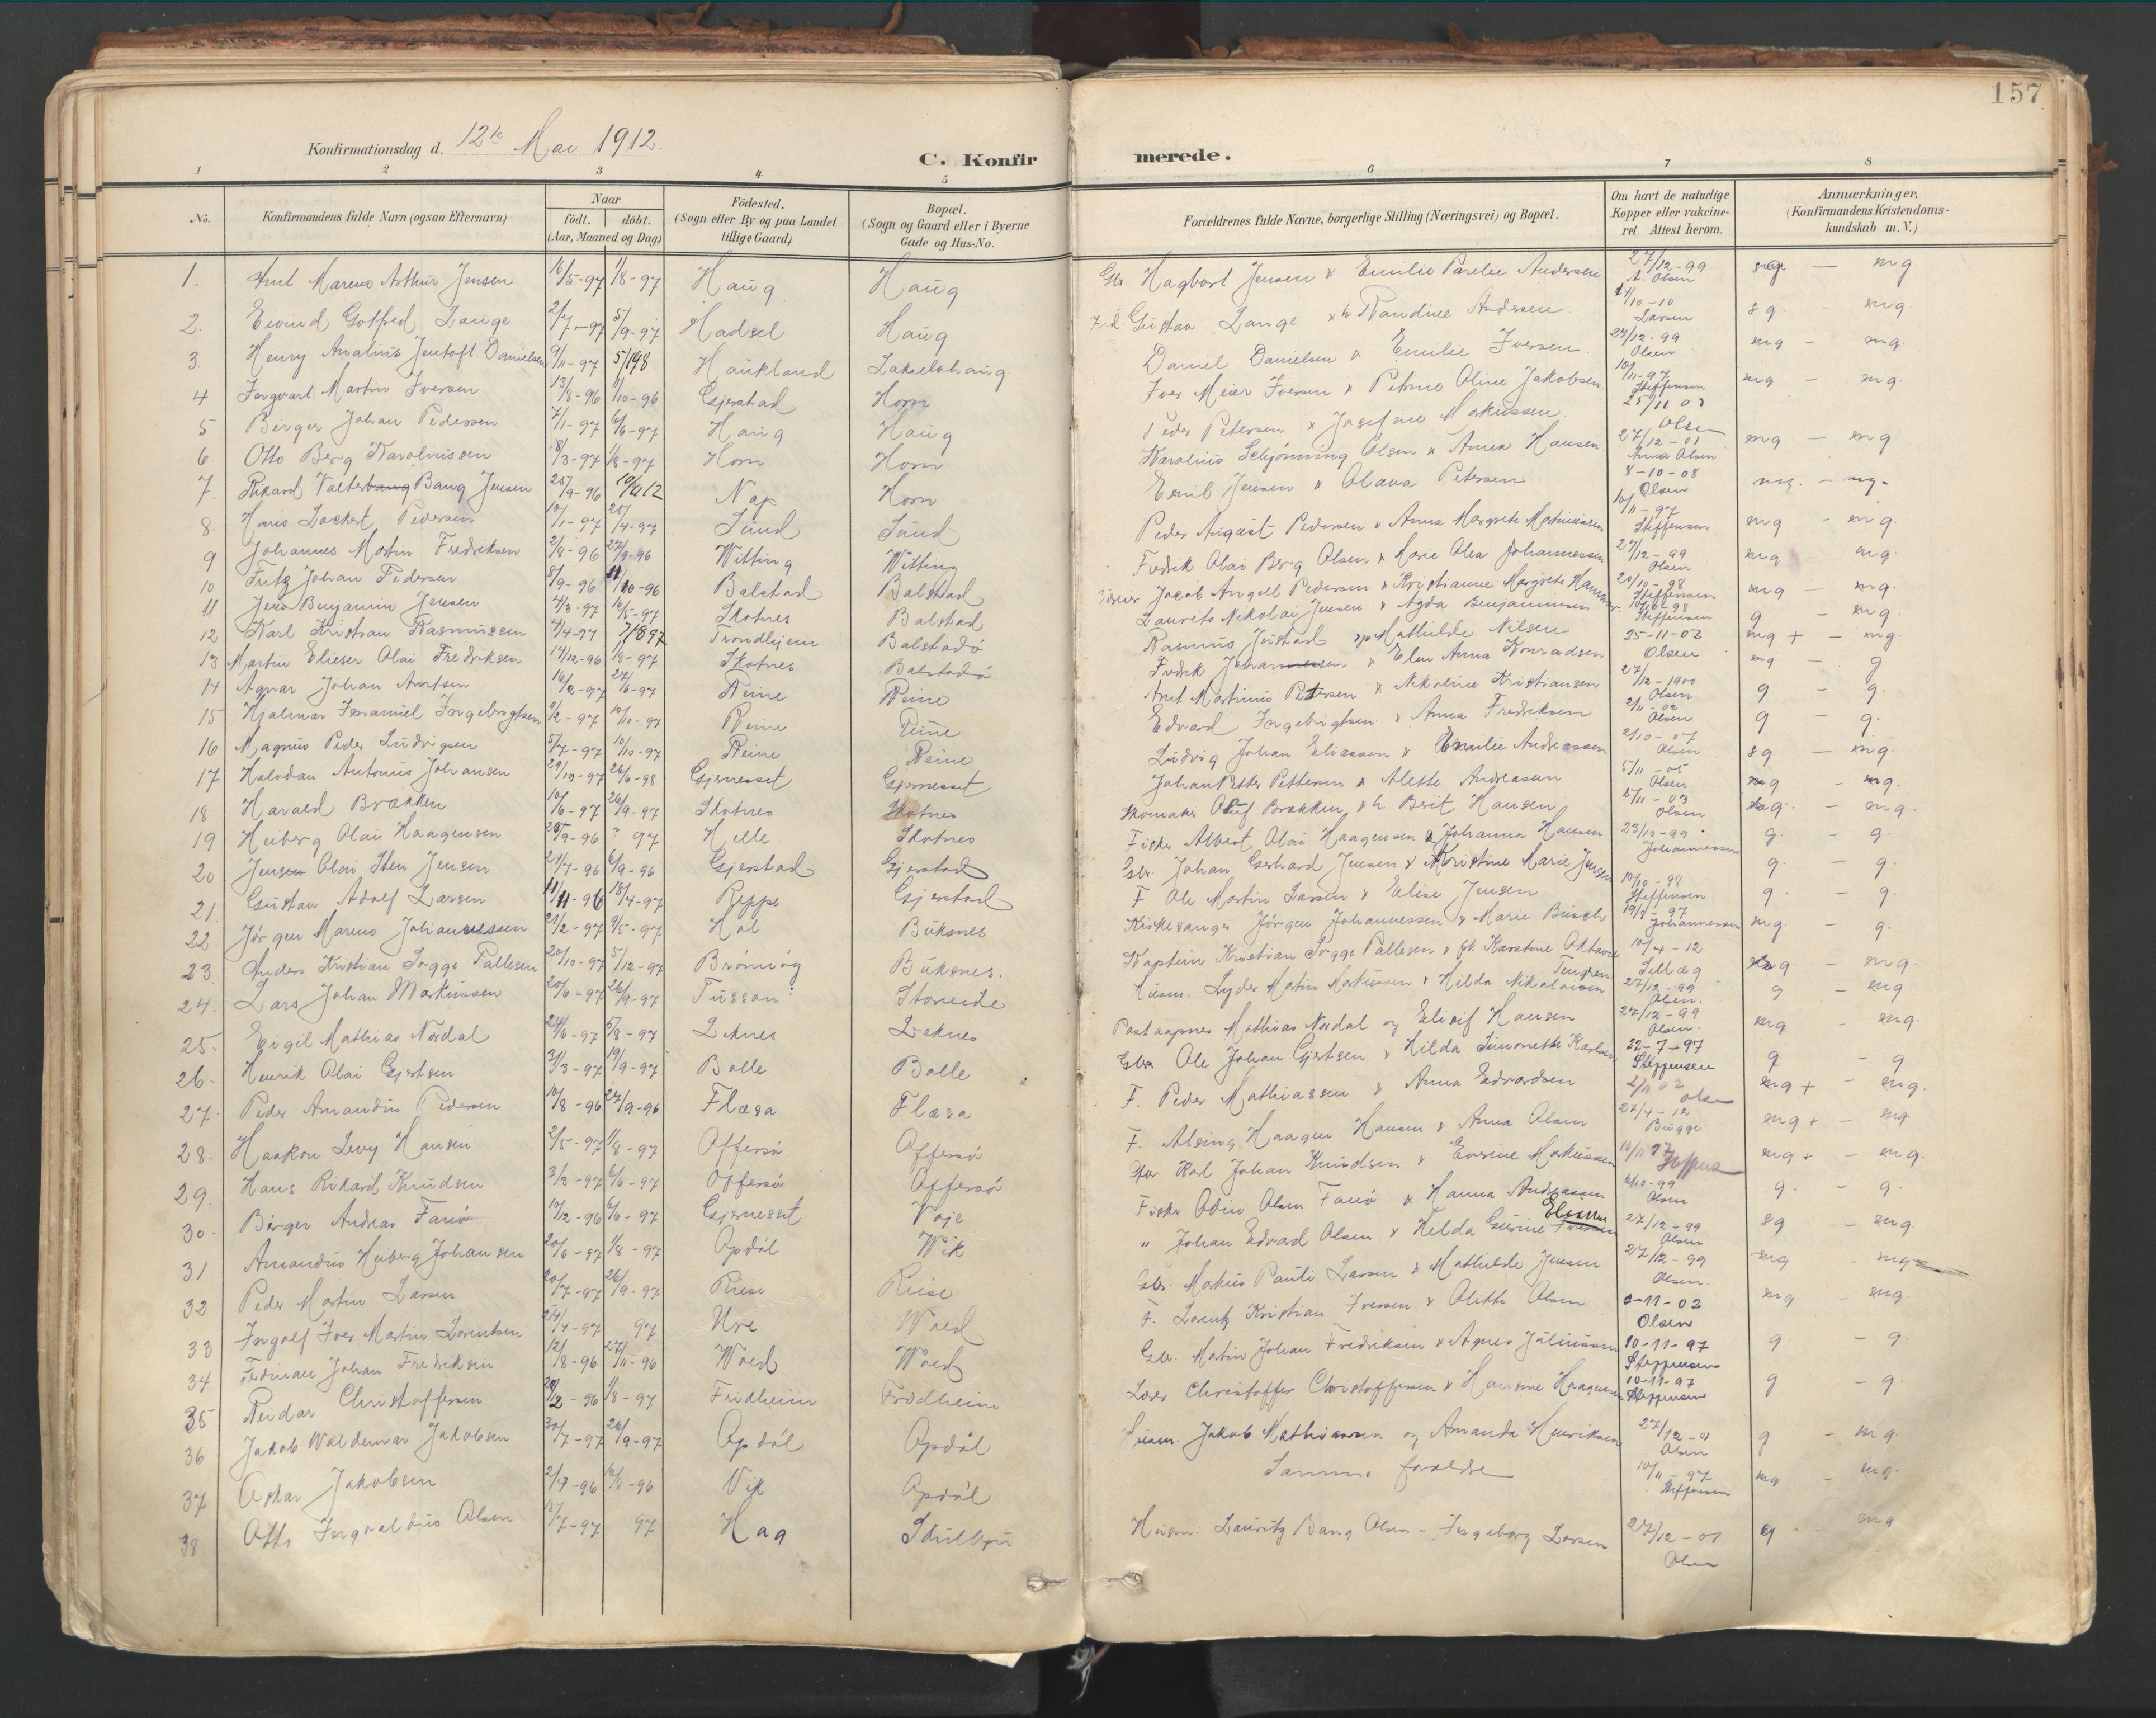 157
Konfirmationsdag d. 12te Mai 1912.
C. Konfirmerede.
1 2 3 4 5 6 7 8
No. Konfirmandens fulde Navn (ogsaa Efternavn) Naar födt. döbt. (Aar, Maaned og Dag) Födested. (Sogn eller By og paa Landet tillige Gaard) Bopæl. (Sogn og Gaard eller i Byerne Gade og Hus-No. Forældrenes fulde Navne, borgerlige Stilling (Næringsvei) og Bopæl. Om havt de naturlige Kopper eller vakcineret. Attest herom. Anmærkninger. (Konfirmandens Kristendomskundskab m. V.)
1. Arnt Mareno Arthur Jensen 16/5-97 1/8-97 Haug Haug Gbr Hagbart Jensen & Emilie Parelie Andersen 27/12-99 A. Olsen mg — mg
2. Eivind Gotfred Lange 2/7-97 5/9-97 Hadsel Haug Gustav Lange & h Nandine Andersen 14/10-10 Larsen sg — mg.
3. Henry Analius Jentoft Danielsen 9/11-97 5/198 Haukland Lakselvhaug Daniel Danielsen & Emilie Iversen. 27/12-99 Olsen mg — mg.
4 Ingvart Martin Iversen 13/8-96 1/10-96 Gjerstad Horn Iver Meier Iversen & Petrine Oline Jakobsen 10/11-97 Steffensen mg — mg.
5 Berger Johan Pedersen 7/1-97 6/6-97 Haug Haug Peder Petersen & Josefine Markussen. 25/11 03 Olsen
6. Otto Berg Karoliussen 8/3-97 1/8-97 Horn Horn Karolius Schjönning Olsen & Anna Hansen 27/12-01 Anna Olsen mg — mg
7. Rikard Valter Bang Jensen 25/9-96 Nap Horn Emil Jensen & Olava Petersen 8-10-08 Olsen mg. — mg.
8. Hans Lockert Pedersen 10/1-97 20/4-97 Sund Sund Peder August Pedersen & Anna Margrete Martinussen 10/11-97 Steffensen mg — mg.
9 Johannes Martin Fredriksen 2/8-96 27/9-96 Witting Witting Fredrik Olai Berg Olsen & Marie Olea Johannessen 27/12-99 Olsen mg — mg.
10 Fritz Johan Pedersen 8/9-96 11/10-96 Balstad Balstad Jacob Angell Pedersen & Kristianne Margrete Hammer 20/10-98 Steffensen mg — mg.
11 Jens Benjamin Jensen 4/3-97 16/5-97 Skotnes Balstad Laurits Nikolai Jensen & Agda Benjaminsen 10/10-98 Steffensen g — mg.
12 Karl Kristian Rasmussen 4/4-97 7/897 Trondhjem Balstadö Rasmus Justad & Mathilde Nilsen 25-11-03 Olsen mg + — mg.
13 Martin Elieser Olai Fredriksen 14/12-96 18-97 Skotnes Balstadö Fredrik Johannesen & Elen Anna Konradsen mg — g
14 Agnar Johan Arntsen 16/2-97 27/6-97 Reine Reine Arnt Martinus Petersen & Nikoline Kristiansen 27/12-1900 Olsen g — g.
15 Hjalmar Emanuel Ingebrigtsen 2-97 10/10-97 Reine Reine Edvard Ingebrigtsen & Anna Fredriksen 2/11-02 Olsen g — g.
16 Magnus Peder Ludvigsen 5/7-97 10/10-97 Reine Reine Ludvig Johan Eliassen & Emilie Andreassen 2/10-07 Olsen sg — mg.
17 Halvdan Antonius Johansen 29/10-97 26/6-98 Gjernesset Gjernesset Johan Petter Pettersen & Alette Andreasen 5/11-05 Olsen mg — mg.
18 Harald Brækken 10/6-97 26/9-97 Skotnes Skotnes Skomaker Oluf Brækken & h. Berit Hansen 5/11-03 Olsen mg. — mg.
19 Heiberg Olai Haagensen 28/9-96 ? 97 Helle Skotnes Fisker Albert Olai Haagensen & Johanna Hansen 23/10-99 Johannessen g. — g.
20 Jensen Olai Sten Jensen 24/7-96 6/9-96 Gjerstad Gjerstad Gbr. Johan Gerhard Jensen & Kristine Marie Jensen g. — g.
21 Gustav Adolf Larsen 11/11-96 18/4-97 Reppe Gjerstad F Ole Martin Larsen & Elise Jensen 10/10-98 Steffensen g. — g.
22. Jörgen Mareno Johannessen 21/2-97 9/5-97 Hol Buksnes Kirkesanger Jörgen Johannessen & Marie Busch 19/8-97 Johannessen mg. — g.
23. Anders Kristian Sogge Pallesen 20/10-97 5/12-97 Brönnög Buksnes. Kaptein Kristian Sogge Pallesen & fh. Karstine Oktavie Tengsen 10/4-12 mg — mg.
24. Lars Johan Markussen 20/6-97 26/9-97 Tussan Storeide Husm. Lyder Martin Markussen & Hilda Nikolaisen 27/12-99 Olsen. g — mg
25. Eigil Mathias Nordal 24/6-97 5/8-97 Leknes Leknes Postaapner Mathias Nordal og Elisif Hansen 27/12-99 Olsen. mg — mg.
26. Henrik Olai Gjertsen 3/3-97 19/9-97 Bolle Bolle Gbr. Ole Johan Gjertsen & Hilda Simonette Karlsen 22-7-97 Steffensen g — g
27. Peder Amandus Pedersen 10/8-96 27/9-96 Flæsa Flæsa F. Peder Mathiassen & Anna Edvardsen 2/11 02 Olsen mg + — mg.
28. Haakon Levy Hansen 2/5-97 1/8-97 Offersö Offersö F. Alsing Haagen Hansen & Anna Olsen 27/4-12 Bugge mg + — mg.
29. Hans Rikard Knudsen 31/3-97 6/6-97 Offersö Offersö Karl Johan Knudsen & Evrine Markussen 10/11 97 mg + — mg.
30. Birger Andreas Fanö 10/12-96 6/6-97 Gjernesset Voje Fisker Odin Olsen Fanö & Hanna Andreassen 6/10-99 Olsen g. — g.
31 Amandus Heiberg Johansen 20/6-97 1/8-97 Opdöl Wik " Johan Edvard Olsen & Hilda Gurine Iversen 27/12-99 Olsen sg — mg.
32 Peder Martin Larsen 20/7-97 26/9-97 Riise Riise Gbr. Markus Pauli Larsen & Mathilde Jensen 27/12-99 Olsen. mg - mg
33 Ingolf Iver Martin Lorentsen 24/4-97 97 Ure Woed F. Lorentz Kristian Iversen & Olette Olsen 2-11-03 Olsen mg — mg.
34 Ferdinan Johan Fredriksen 12/8-96 27/11-96 Woed Woed Gbr. Martin Johan Fredriksen & Agnes Juliussen 10-11-97 Steffensen g — g.
35 Reidar Christoffersen 2-96 1/8-97 Fridheim Fridheim Lærer Christoffer Christoffersen & Hansine Haagensen 10-11-97 Steffensen g — g.
36 Jakob Waldemar Jakobsen 30/7-97 26/9-97 Opdöl Opdöl Husm. Jakob Mathiassen og Amanda Henriksen 27/12-01 Olsen g — mg
37 Oskar Jakobsen 2/7-96 -96 Vik Opdöl Samme forældre 10/11-97 Steffensen mg — mg.
38 Otto Ingvaldus Olsen 10/7-97 97 Hag Skulbru Husm. Lauritz Bang Olsen - Ingeborg Larsen 27/12-01 Olsen g — mg